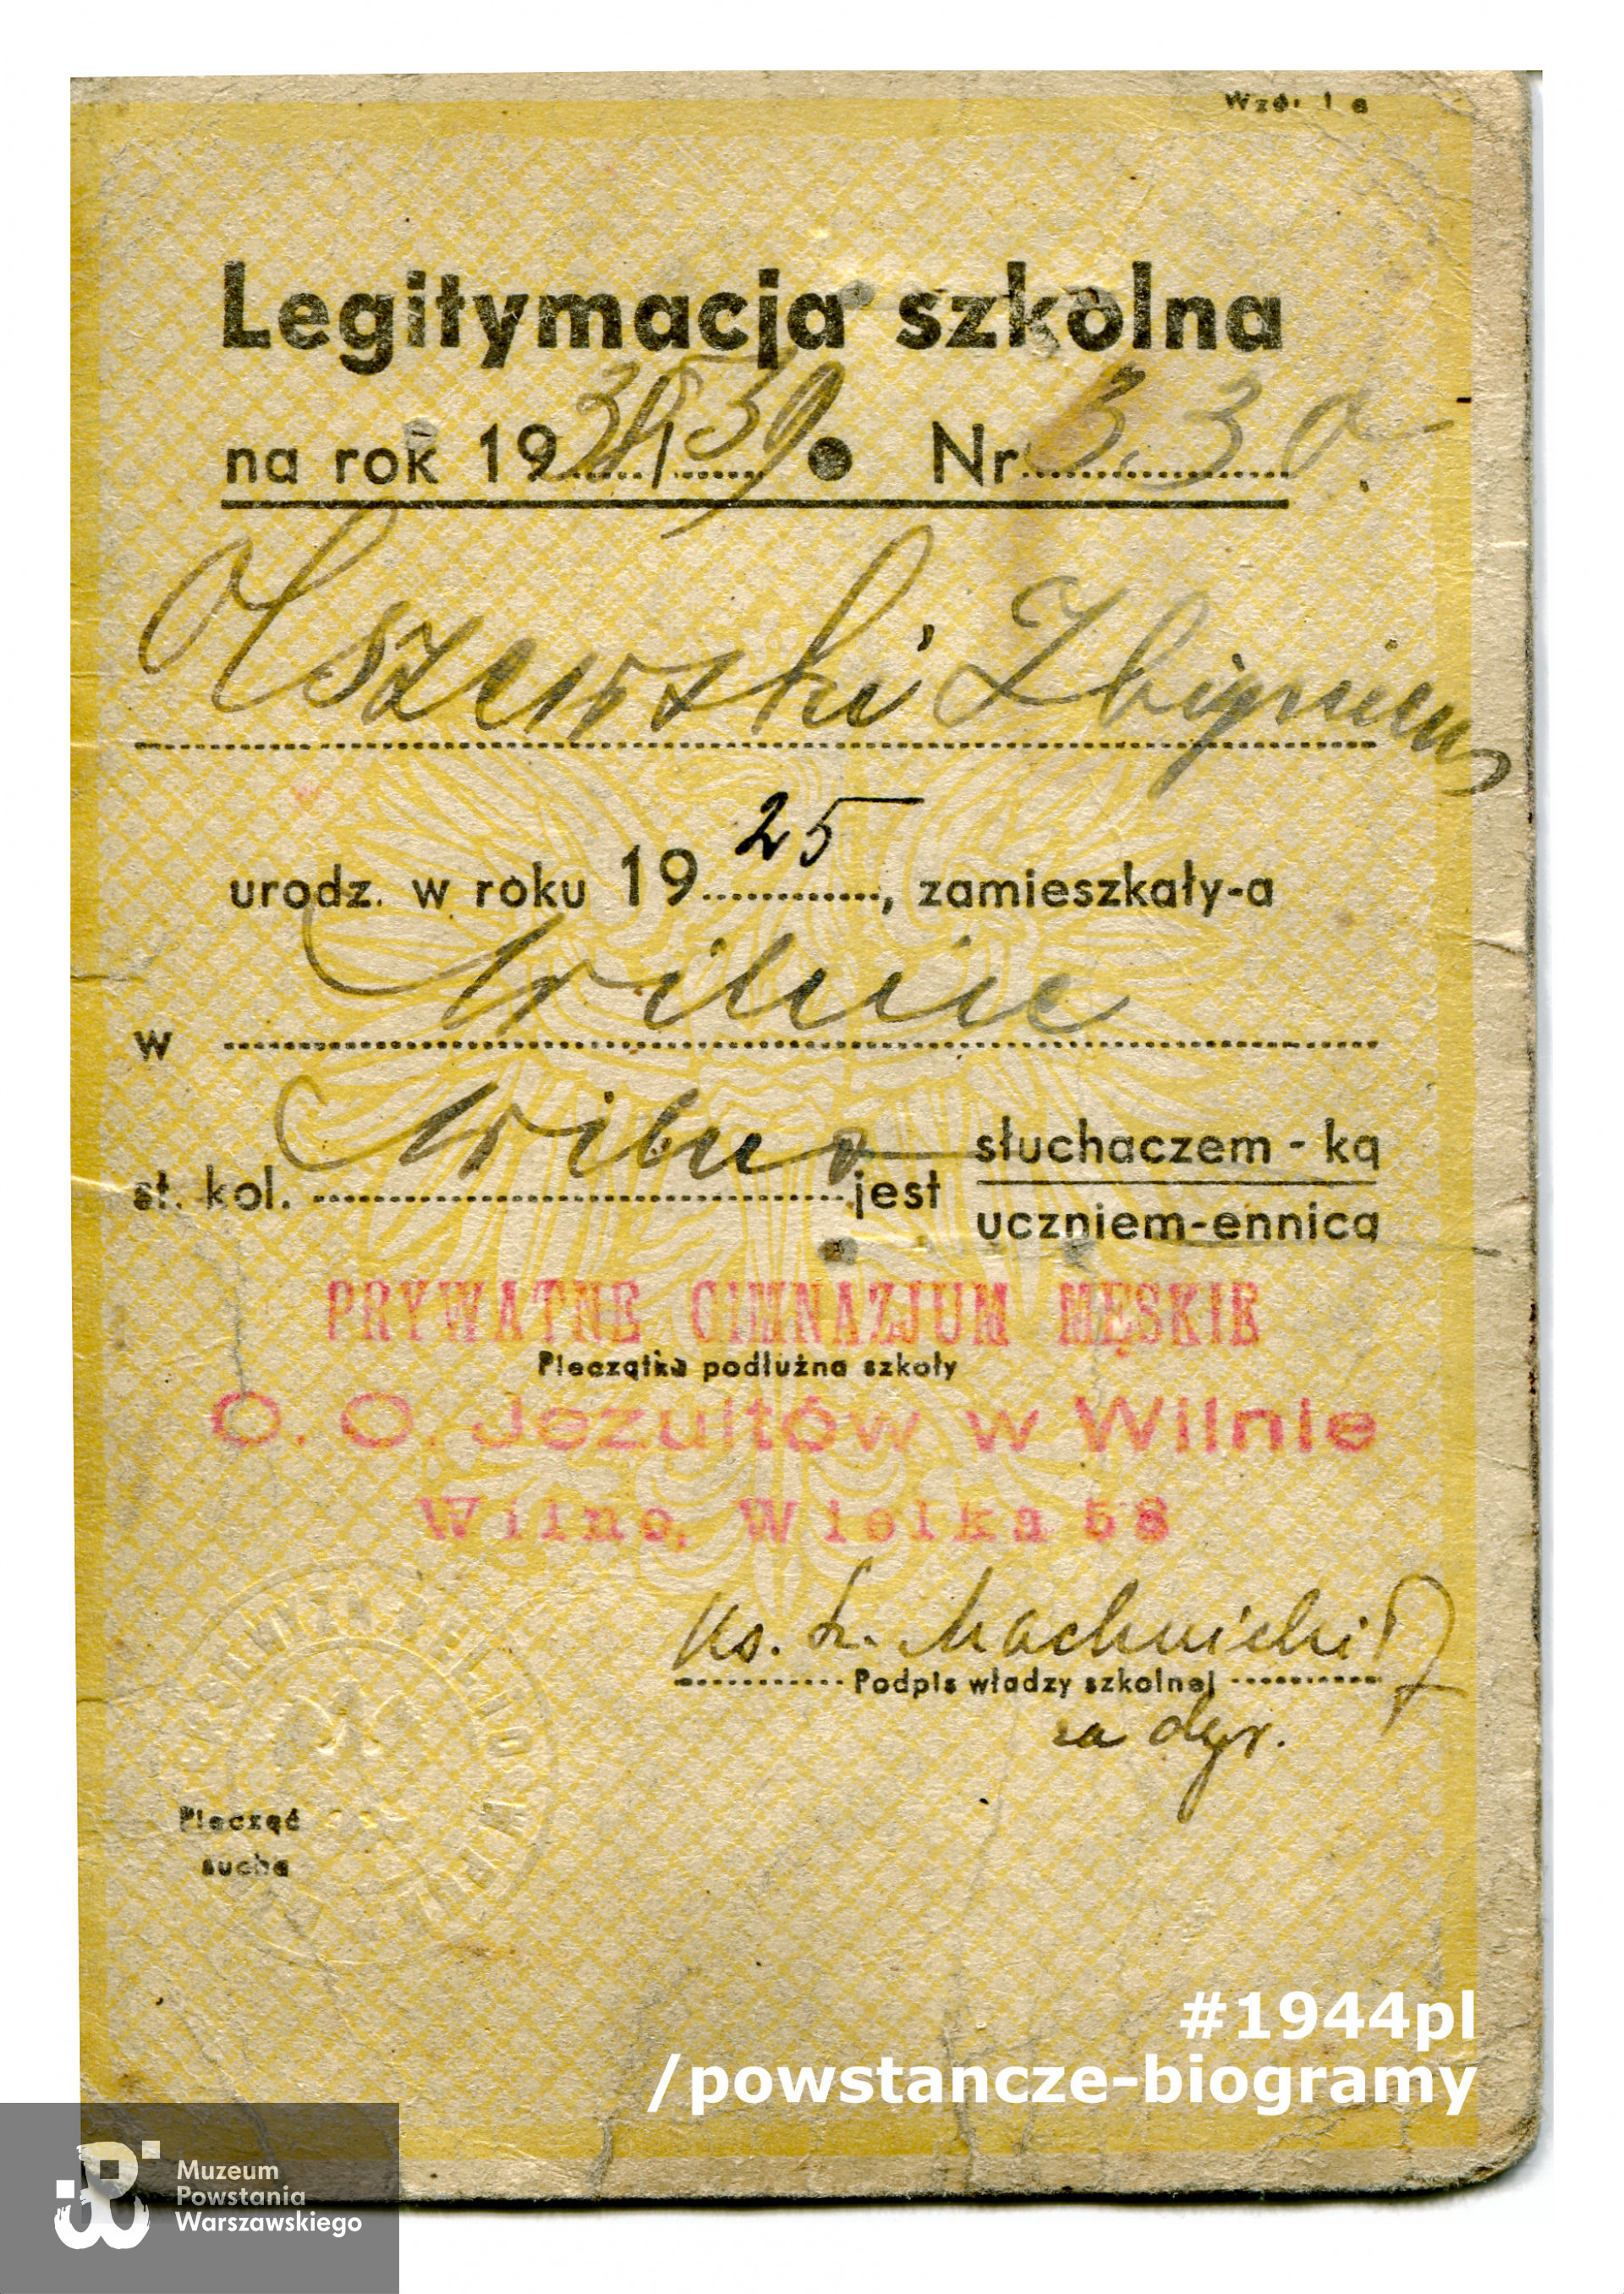 Wzór 1 a
Legitymacja szkolna
na rok 1938/39 • Nr 330
Olszewski Zbigniew
urodz. w roku 1925, zamieszkały-a
w Wilnie
st. kol. Wilno jest słuchaczem - ką
uczniem-ennicą
PRYWATNE GIMNAZJUM MĘSKIE
Pieczątka podłużna szkoły
O. O. Jezuitów w Wilnie
Wilno, Wielka 58
Ks. Machnicki
Podpis władzy szkolnej
za dyr.
Pieczęć
sucha
#1944pl
/powstancze-biogramy
Muzeum
Powstania
Warszawskiego